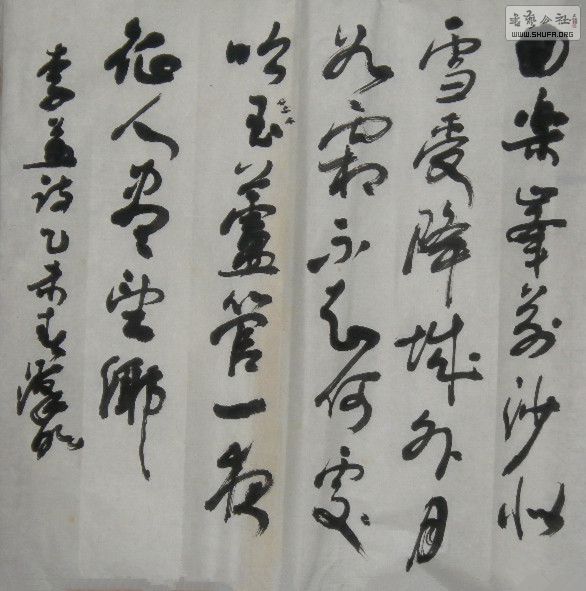 書藝公社
WWW.SHUFA.ORG
回樂峯前沙似
雪受降城外月
如霜不知何處
吹玉蘆管一夜
征人尽望鄉
李益詩乙未春